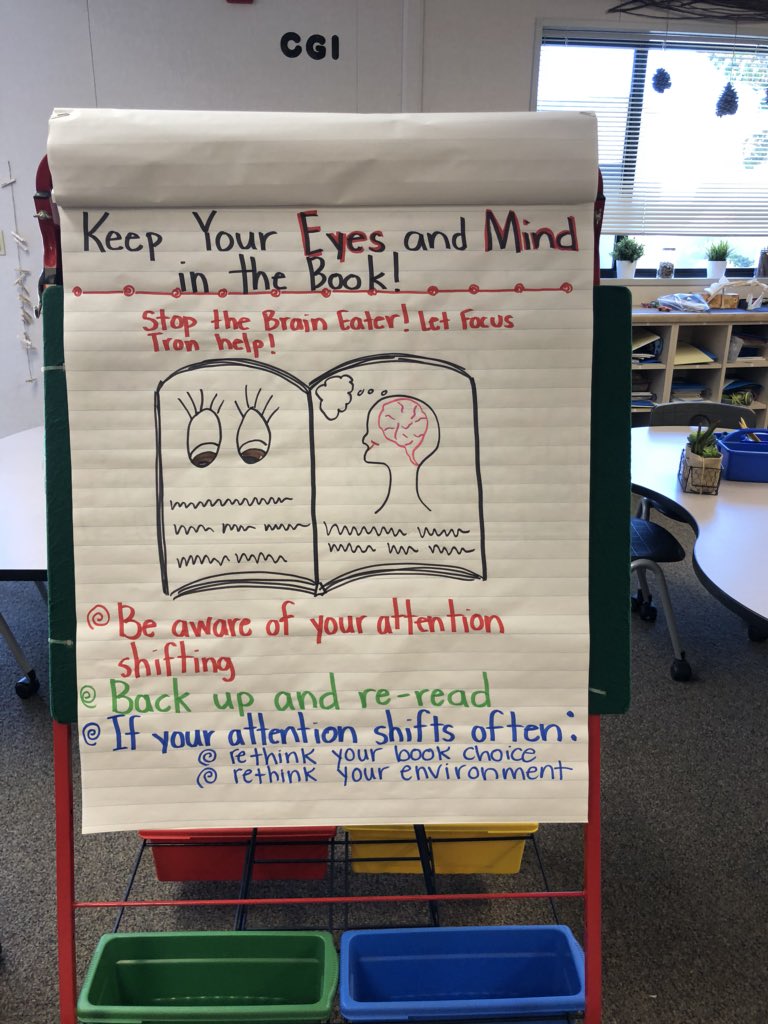 CGI
Keep Your Eyes and Mind
in the Book!
Stop the Brain Eater! Let Focus
Tron help!
Be aware of your attention
shifting
Back up and re-read
If your attention shifts often:
rethink your book choice
rethink your environment